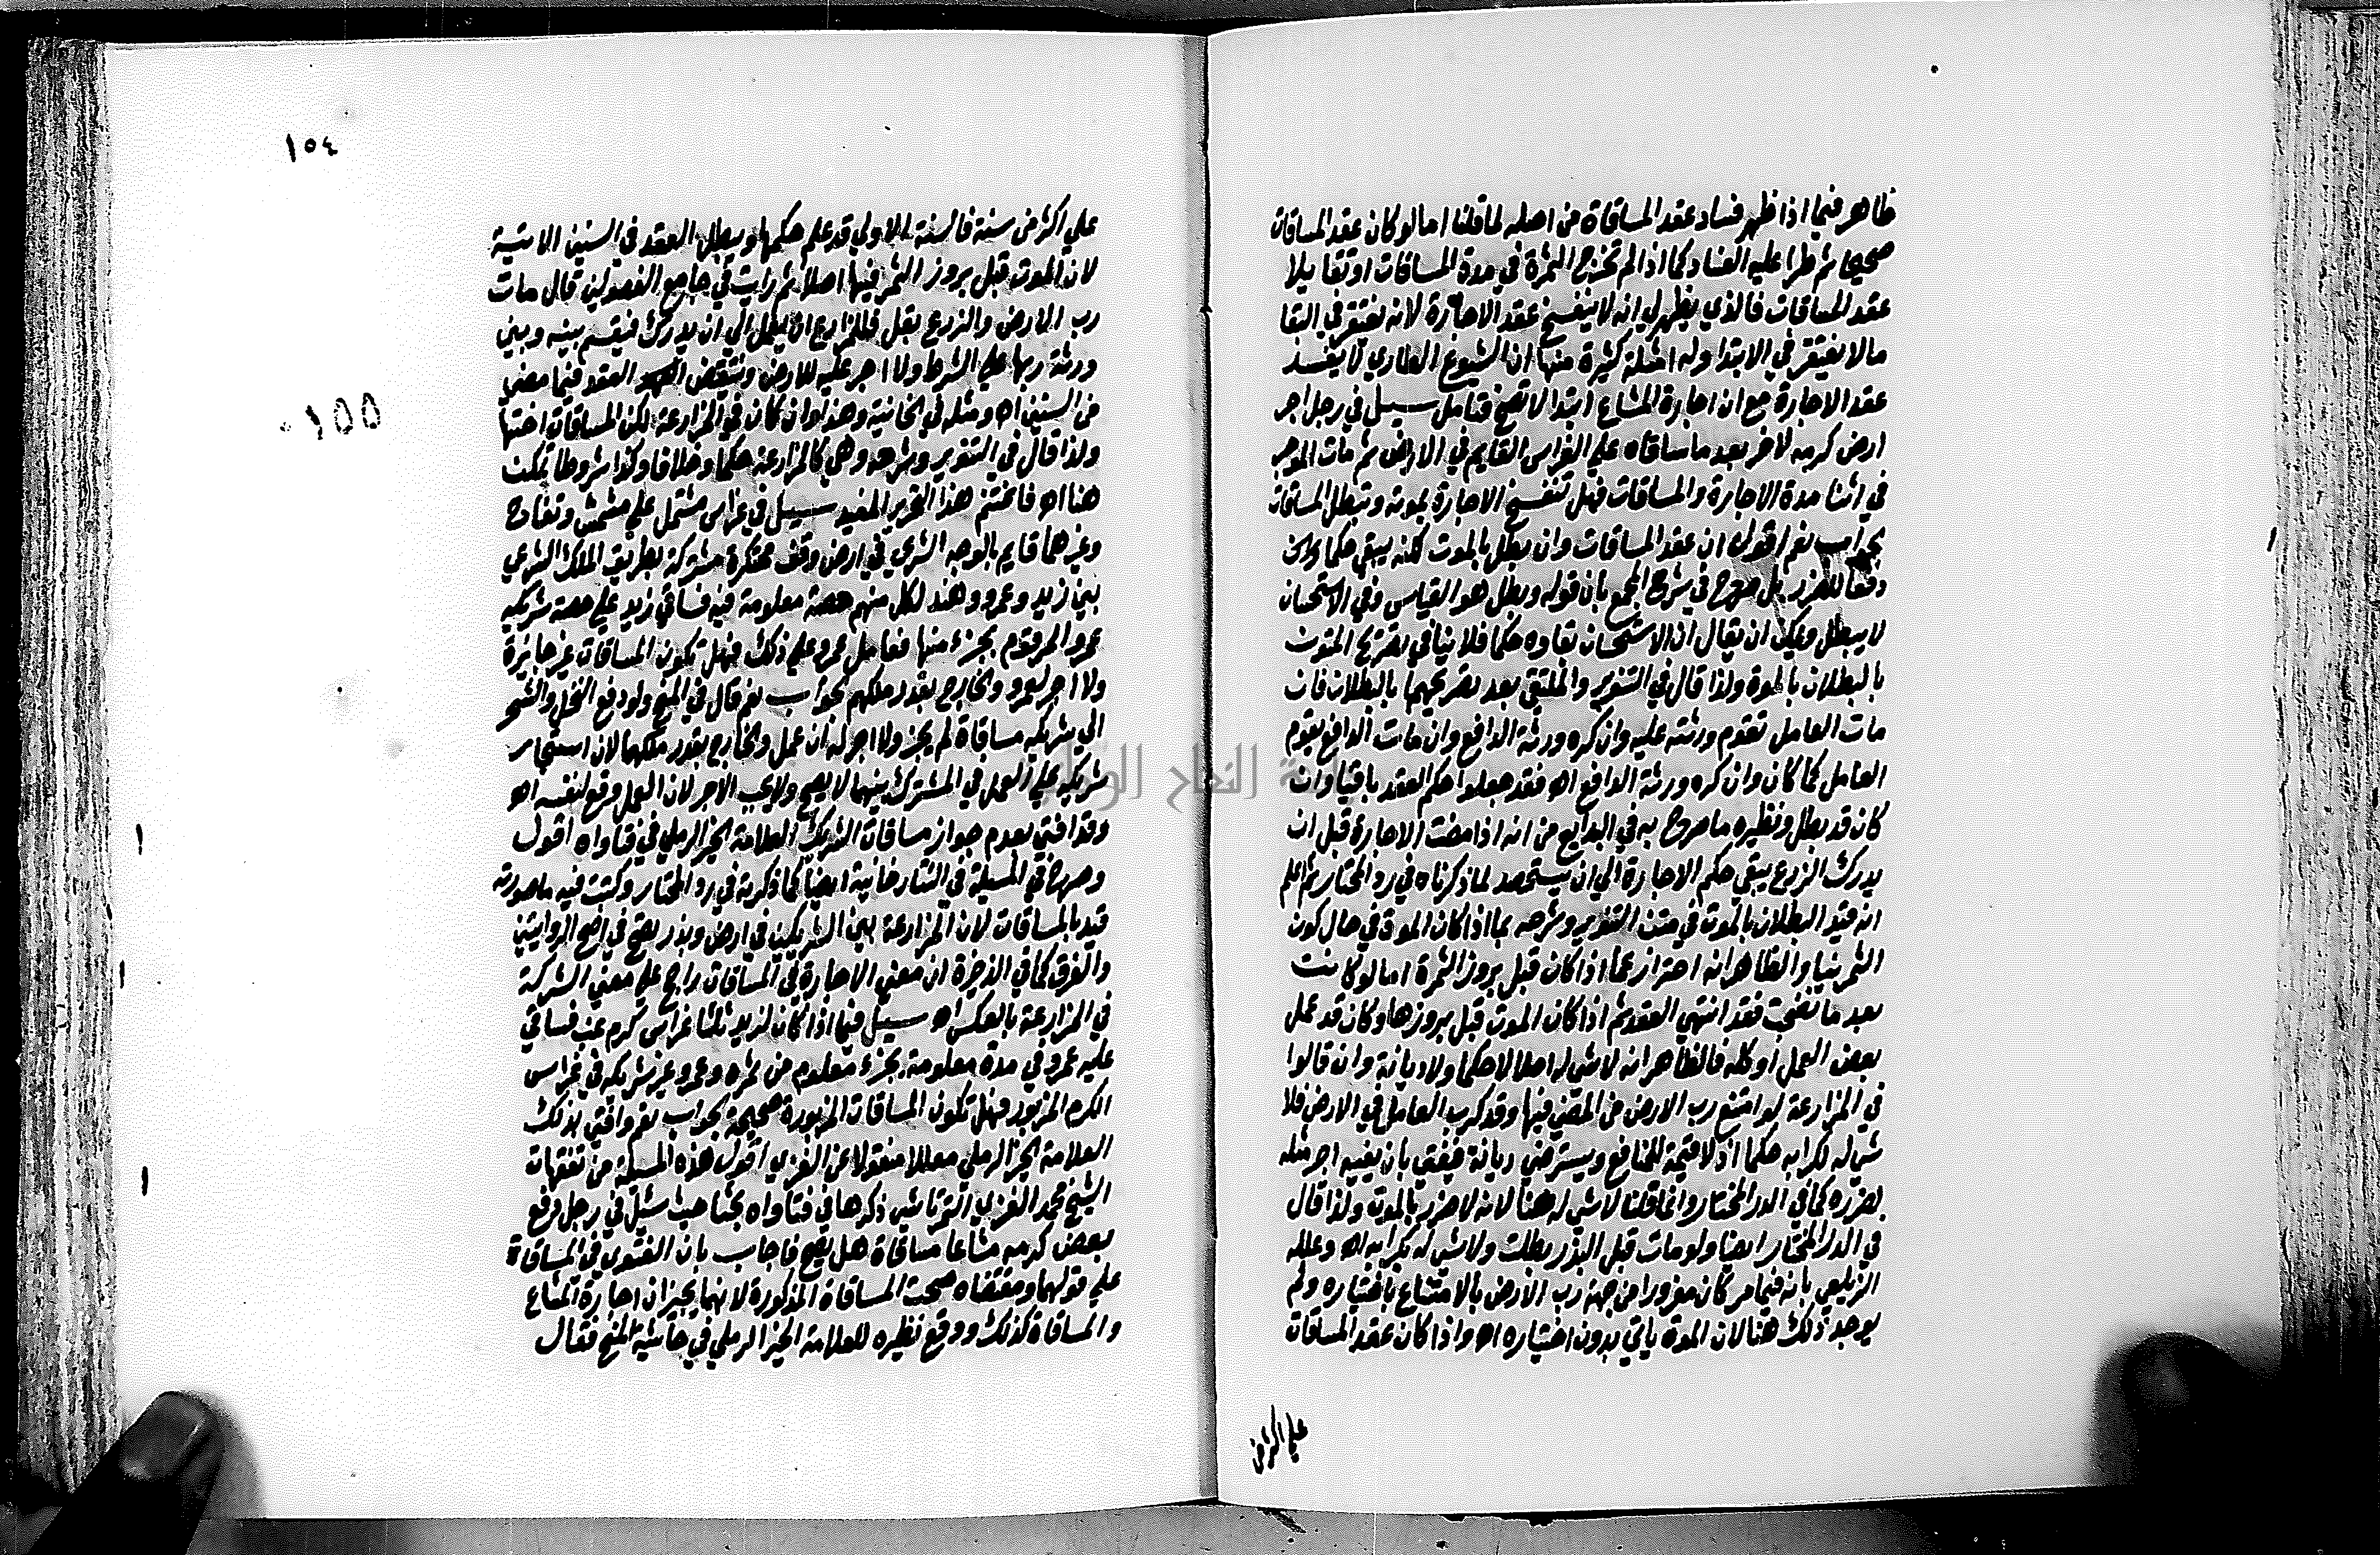 ظاهر فيما اذا ظهر فساد عقد المساقاة من اصله لما قلنا اما لو كان عقد المساقات
صحيحا ثم طرا عليه الفساد كما اذا لم تخرج الثمرة في مدة المساقات او تقايلا
عقد المساقات فالذي يظهر لي انه لا ينفسخ عقد الاجارة لانه يغتفر في البقا
مالا يغتفر في الابتدا وله امثلة كثيرة منها ان الشيوع الطاري لا يفسد
عقد الاجارة مع ان اجارة المشاع ابتدا لا تصح فتامل سيل في رجل اجر
ارض كرمه لاخر بعد ما ساقاه علي الغراس القايم في الارض ثم مات الموجر
في اثنا مدة الاجارة والمساقات فهل تنفسخ الاجارة بموته وتبطل المساقات
الجواب نعم اقول ان عقد المساقات وان بطل بالموت لكنه يبقي حكما
دفعا للضرر بل صرح في شرح المجمع بان قوله وبطل هو القياس وفي الاستحسان
لا يبطل ويمكن ان يقال ان الاستحسان بقاوه حكما فلا ينافي تصريح المتون
بالبطلان بالموة ولذا قال في التنوير والملتقي بعد تصريحهما بالبطلان فان
مات العامل تقوم ورثته عليه وان كره ورثة الدافع وان مات الدافع يقوم
العامل كما كان وان كره ورثة الدافع اه فقد جعلوا حكم العقد باقيا وان
كان قد بطل ونظيره ما صرح به في البدايع من انه اذا مضت الاجارة قبل ان
يدرك الزرع يبقي حكم الاجارة الي ان يستحصد لما ذكرناه في رد المحتار ثم اعلم
انه قيد البطلان بالموت في متن التنوير وشرحه بما اذا كان الموت في حال كون
الثمر نيا والظاهر انه احتراز عما اذا كان قبل بروز الثمرة اما لو كانت
بعد ما نضجت فقد انتهي العقد ثم اذا كان الموت قبل بروزها وكان قد عمل
بعض العمل او كله فالظاهر انه لا شي له اصلا لا حكما ولا ديانة وان قالوا
في المزارعة لو امتنع رب الارض من المضي فيها وقد كرب العامل في الارض فلا
شي له لكرابه حكما اذ لا قيمة للمنافع ويسترضي ديانة فيفتي بان يفيه اجر مثله
لضرره كما في الدر المختار وانما قلنا لا شي له هنا لانه لا ضرر بالموت ولذا قال
في الدر المختار ايضا ولو مات قبل البذر بطلت ولا شي له بكرابه اه وعلله
الزيلعي بانه فيما مر كان مغرورا من جهة رب الارض بالامتناع باختياره ولم
يوجد ذلك هنا لان الموة ياتي بدون اختياره اه واذا كان عقد المساقات
١٥٤
١٥٥
علي اكثر من سنة فالسنة الاولي قد علم حكمها ويبطل العقد في السنين الاتية
لان الموت قبل بروز الثمر فيها اصلا ثم رايت في جامع الفصولين قال مات
رب الارض والزرع بقل فللمزارع ان يعمل الي ان يدرك فيقسم بينه وبين
ورثة ربها علي الشرط ولا اجر عليه للارض وينتقض العقد فيما مضي
من السنين اه ومثله في الخانية وهذا وان كان في المزارعة لكن المساقات اختها
ولذا قال في التنوير وشرحه وهي كالمزارعة حكما وخلافا وكذا شروطا تمكن
هنا اه فاغتنم هذا التحرير المفيد سيل في غراس مشتمل علي مشمش وتفاح
وغيرهما قايم بالوجه الشرعي في ارض وقف محتكرة مشتركة بطريق الملك الشرعي
بين زيد وعمرو وهند لكل منهم حصة معلومة فيه فساقي زيد علي حصة شريكه
عمرو المرقوم بجزء منها فعامل عمرو علي ذلك فهل تكون المساقات غير جايزة
ولا اجر لعمرو والخارج بقدر ملكهم الجواب نعم قال في المنح ولو دفع النخل والشجر
الي شريكه مساقاة لم يجز ولا اجر له ان عمل والخارج بقدر ملكهما لان استيجار
شريكه علي العمل في المشترك بينهما لا يصح ولا يجب الاجر لان العمل وقع لنفسه اه
وقد افتي بعدم جواز مساقاة الشريك العلامة الخير الرملي في فتاواه اقول
وصرح في المسيلة في التتارخانية ايضا كما ذكرته في رد المحتار وكتبت فيه ما صورته
قيد بالمساقات لان المزارعة بين الشريكين في ارض وبذر تصح في اصح الروايتين
والفرق كما في الذخيرة ان معني الاجارة في المساقات راجح علي معني الشركة
في المزارعة بالعكس اه سيل فيما اذا كان لزيد ثلثا غراس كرم عنب فساقي
عليه عمرو في مدة معلومة بجزء معلوم من ثمره وعمرو غير شريكه في غراس
الكرم المزبور فهل تكون المساقات المزبورة صحيحة الجواب نعم وافتي بذلك
العلامة الخير الرملي معللا منقولا عن الغزي اقول هذه المسيلة من تفقهات
الشيخ محمد الغزي التمرتاشي ذكرها في فتاواه بحثا حيث سئل في رجل دفع
بعض كرمه مشاعا مساقاة هل يصح فاجاب بان الفتوي في المساقاة
علي قولهما ومقتضاه صحت المساقاة المذكورة لانهما يجيزان اجارة المشاع
والمساقاة كذلك ووقع نظيره للعلامة الخير الرملي في حاشية المنح فقال